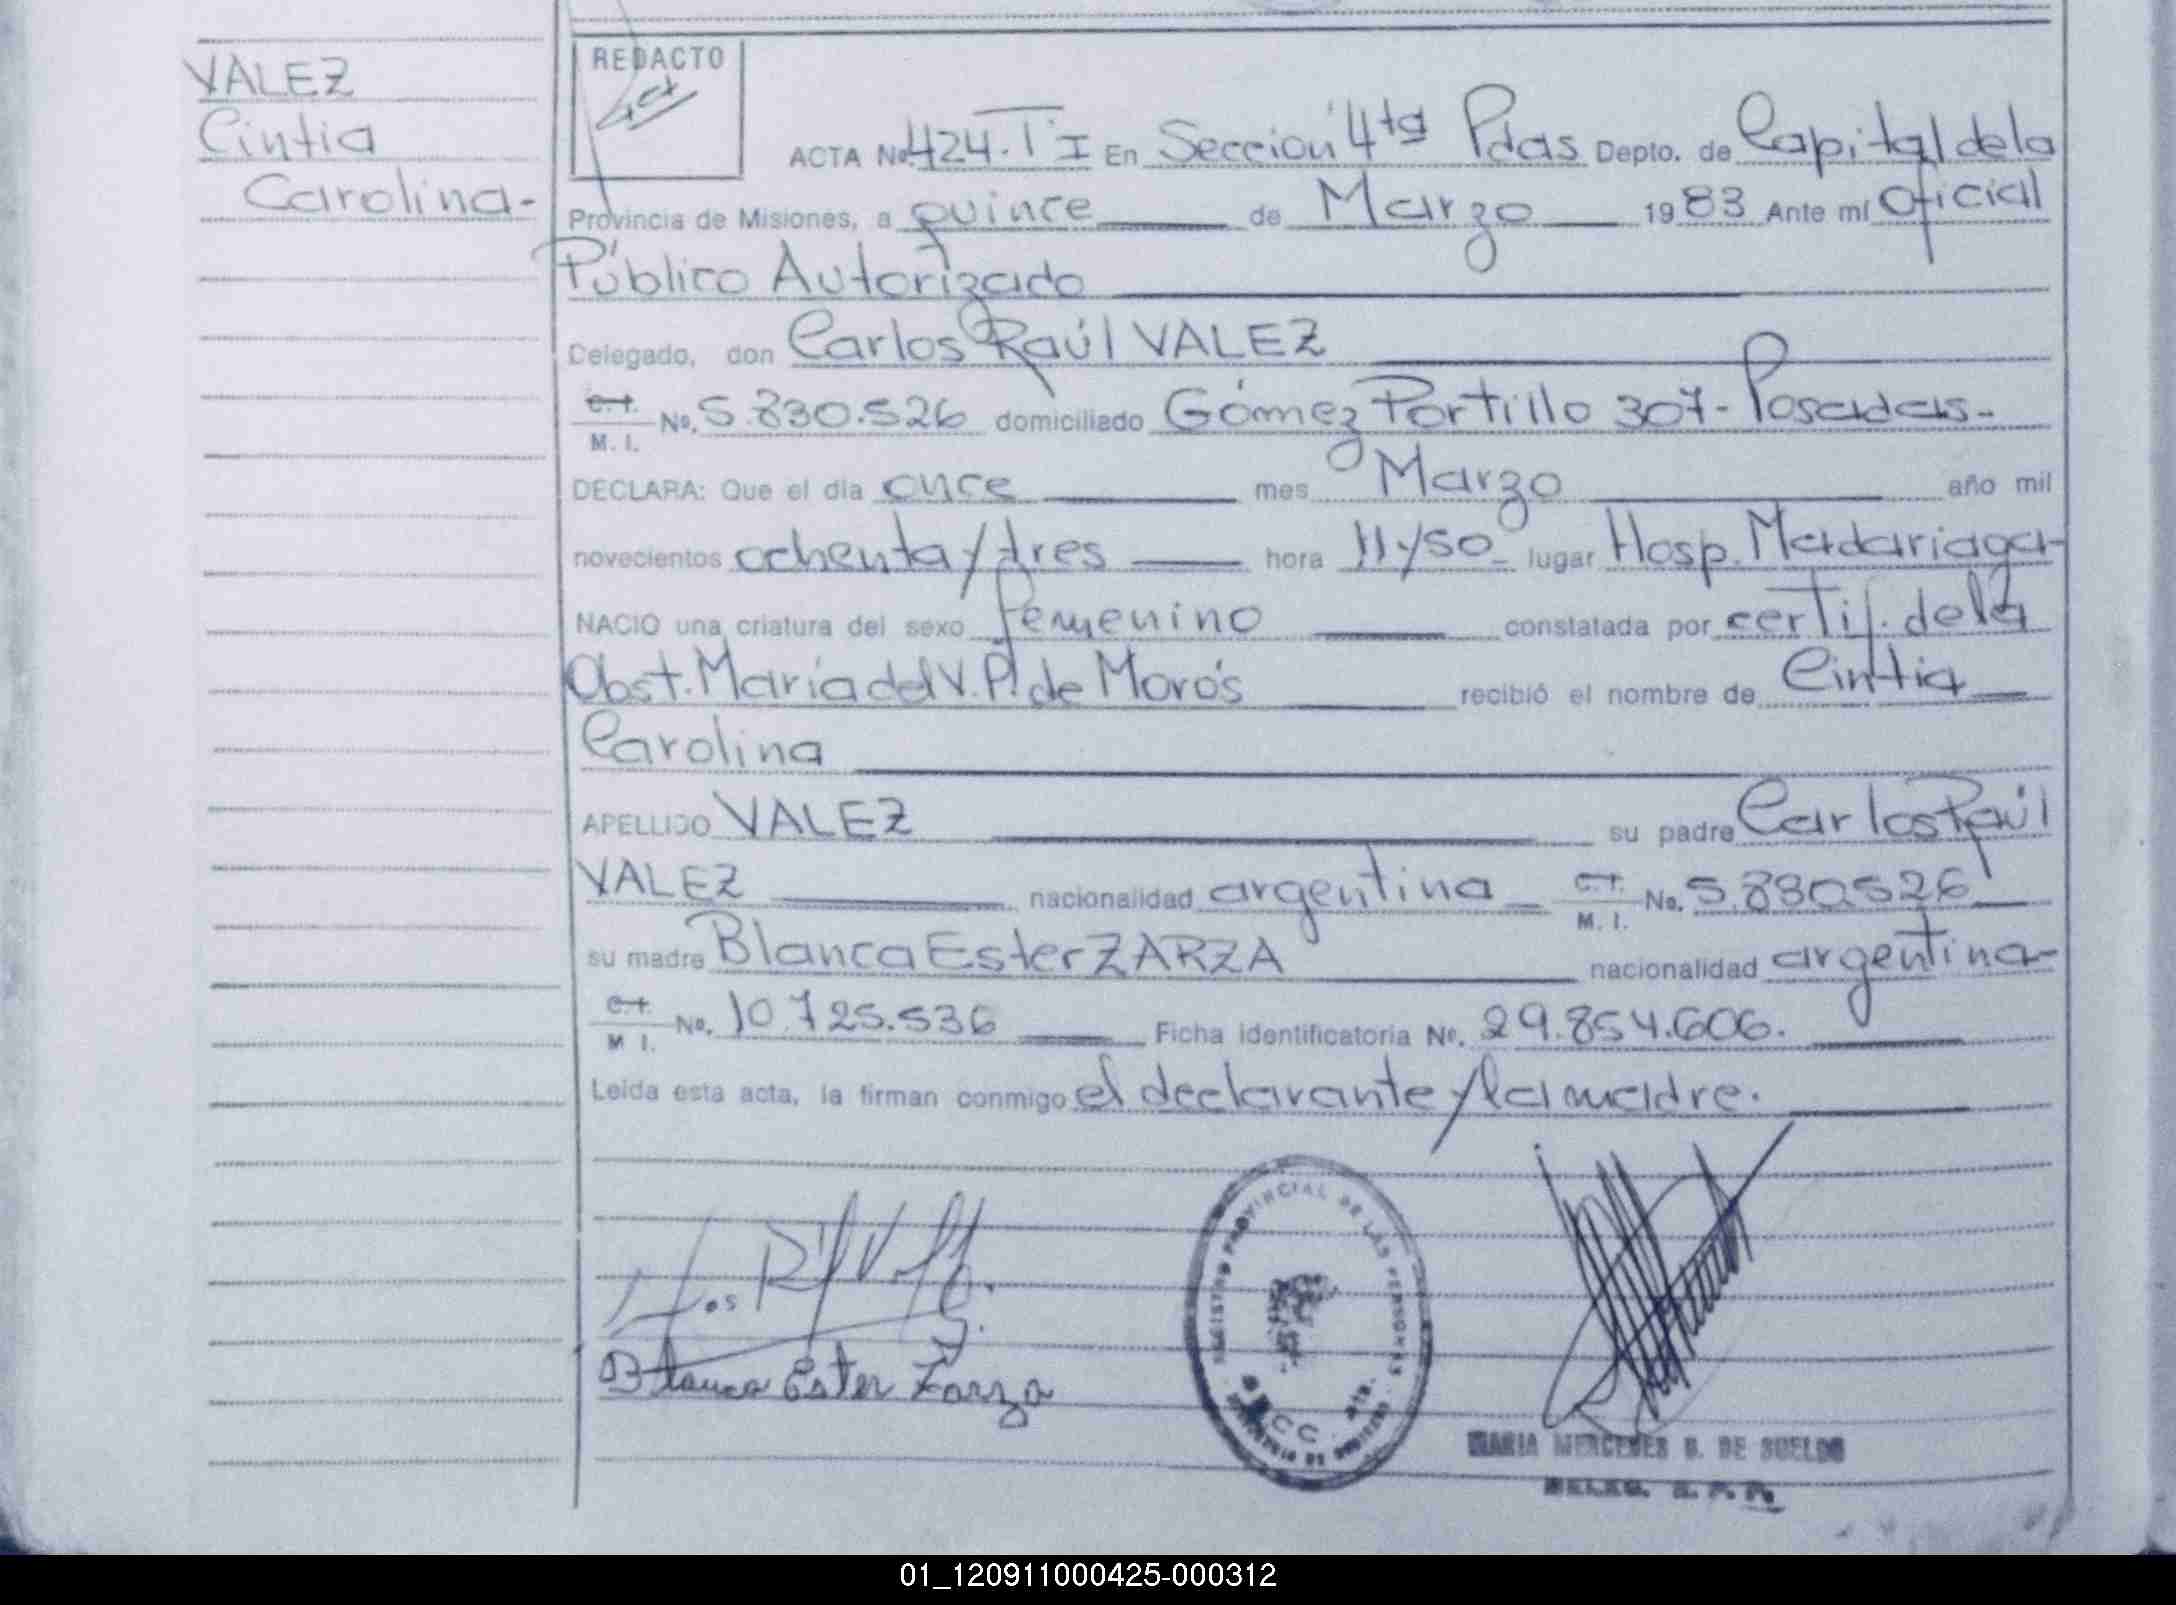 VALEZ
Cintia
Carolina-
REDACTO
ACTA No 424. T° I En Sección 4ta Pdas Depto. de Capital de la
Provincia de Misiones, a quince de Marzo 1983 Ante mí Oficial
Público Autorizado
Delegado, don Carlos Raúl VALEZ
C.I.
M. I. No. 5.830.526 domiciliado Gómez Portillo 307- Posadas-
DECLARA: Que el día once mes Marzo año mil
novecientos ochenta y tres hora 11y50 lugar Hosp. Madariaga-
NACIO una criatura del sexo femenino constatada por certif. de la
Obst. María del V. P. de Morós recibió el nombre de Cintia
Carolina
APELLIDO VALEZ su padre Carlos Raúl
VALEZ nacionalidad argentina C.I.
M. I. No. 5.830.526
su madre Blanca Ester ZARZA nacionalidad argentina-
C.I.
M I. No. 10.725.536 Ficha identificatoria No. 29.854.606.
Leída esta acta, la firman conmigo el declarante y la madre.
REGISTRO PROVINCIAL DE LAS PERSONAS
Blanca Ester Zarza
MARIA MERCEDES B. DE SUELDO
DELEG. R. P. P.
01_120911000425-000312